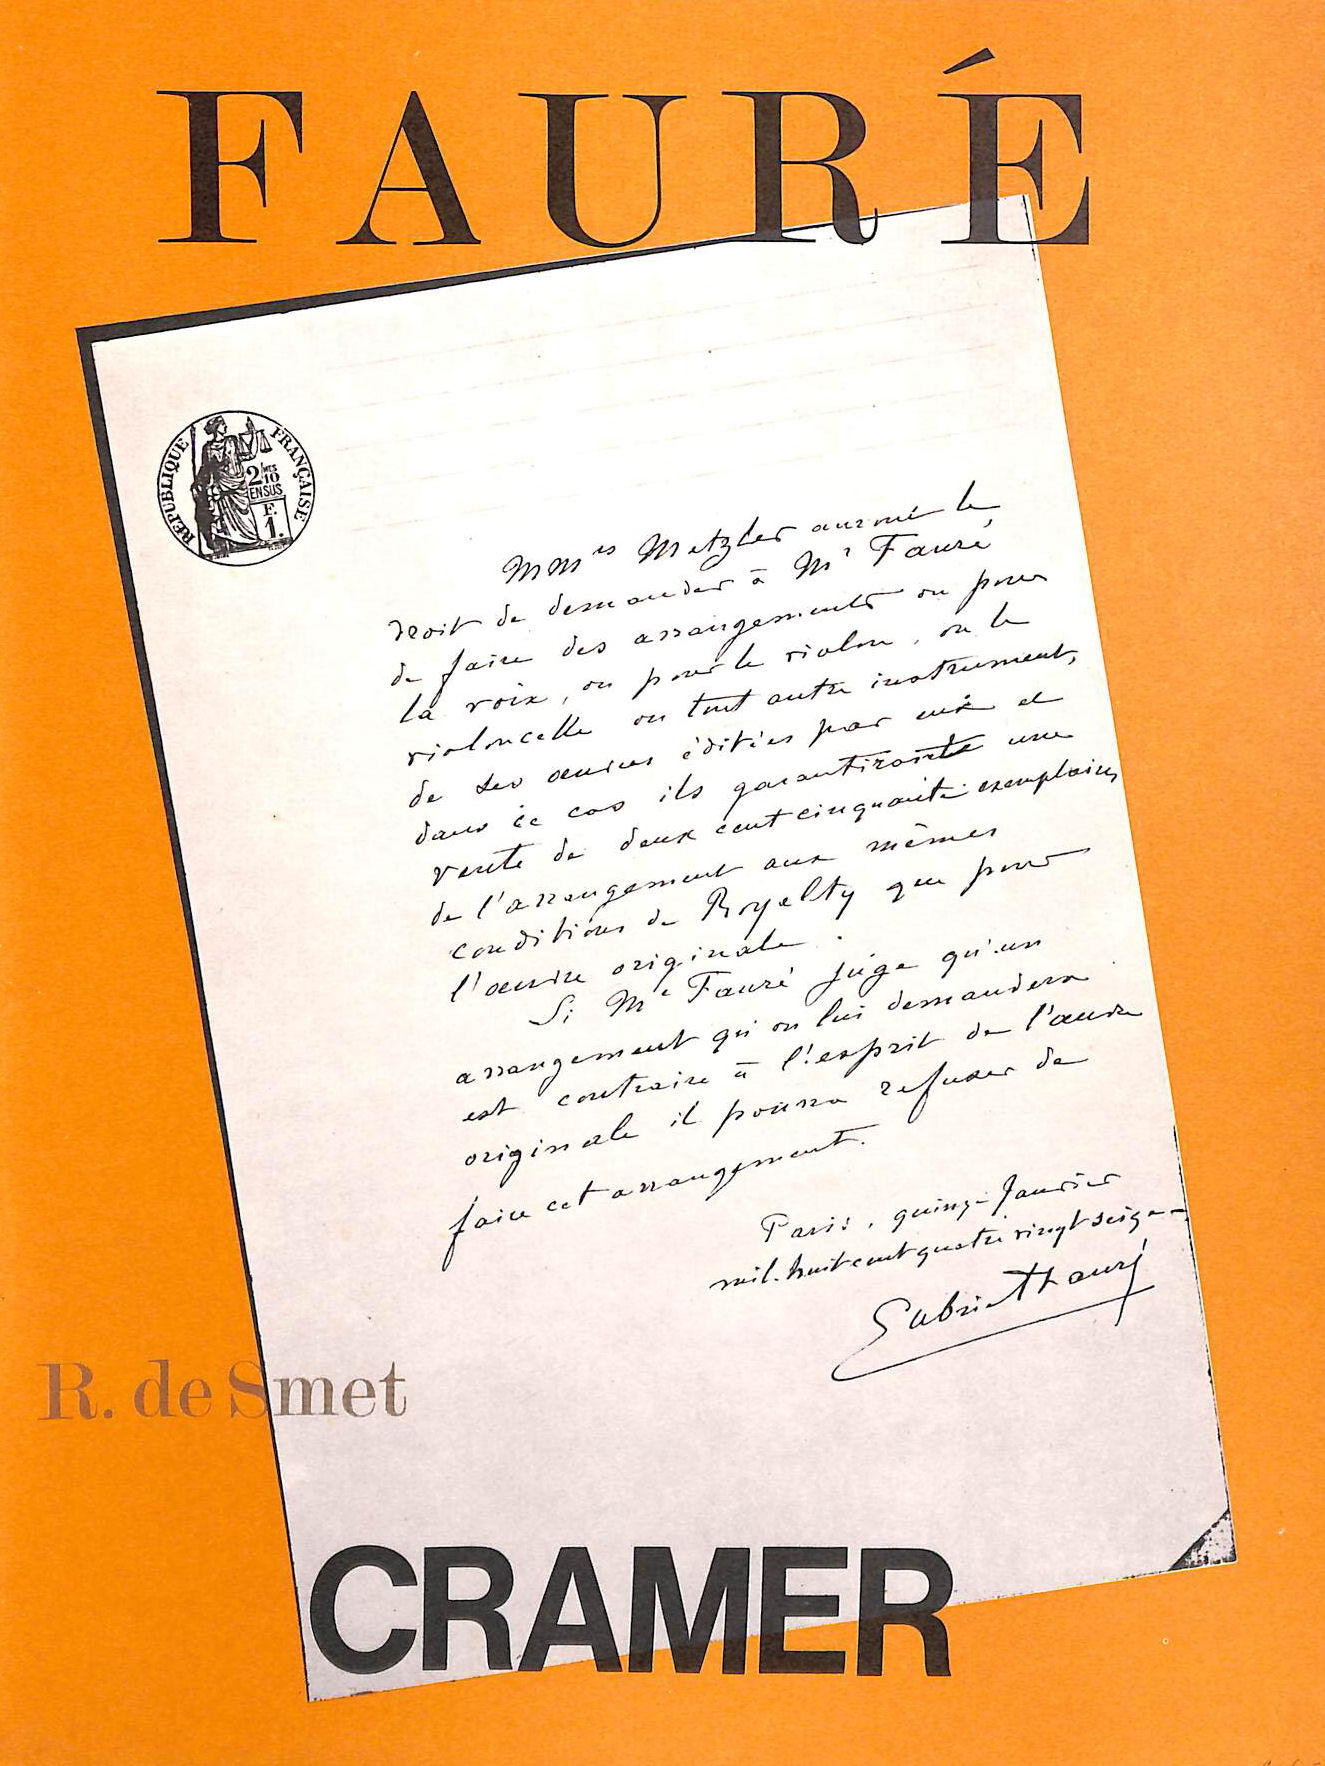 FAURÉ
RÉPUBLIQUE FRANÇAISE
2/10
EN SUS
F.
1.
MMrs Metzler auront le
droit de demander à Mr Fauré
de faire des arrangements ou pour
la voix, ou pour le violon, ou le
violoncelle ou tout autre instrument,
de ses œuvres éditées par eux et
dans ce cas ils garantiront une
vente de deux cent cinquante exemplaires
de l'arrangement aux mêmes
conditions de Royalty que pour
l'œuvre originale.
Si Mr Fauré juge qu'un
arrangement qu'on lui demandera
est contraire à l'esprit de l'œuvre
originale il pourra refuser de
faire cet arrangement.
Paris, quinze Janvier
mil huit cent quatre vingt seize
Gabriel Fauré
R. de Smet
CRAMER